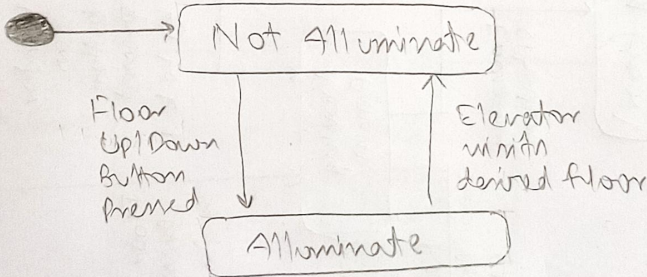 Not Alluminate
Floor
Up/Down
Button
Pressed
Elevator
visits
desired floor
Alluminate